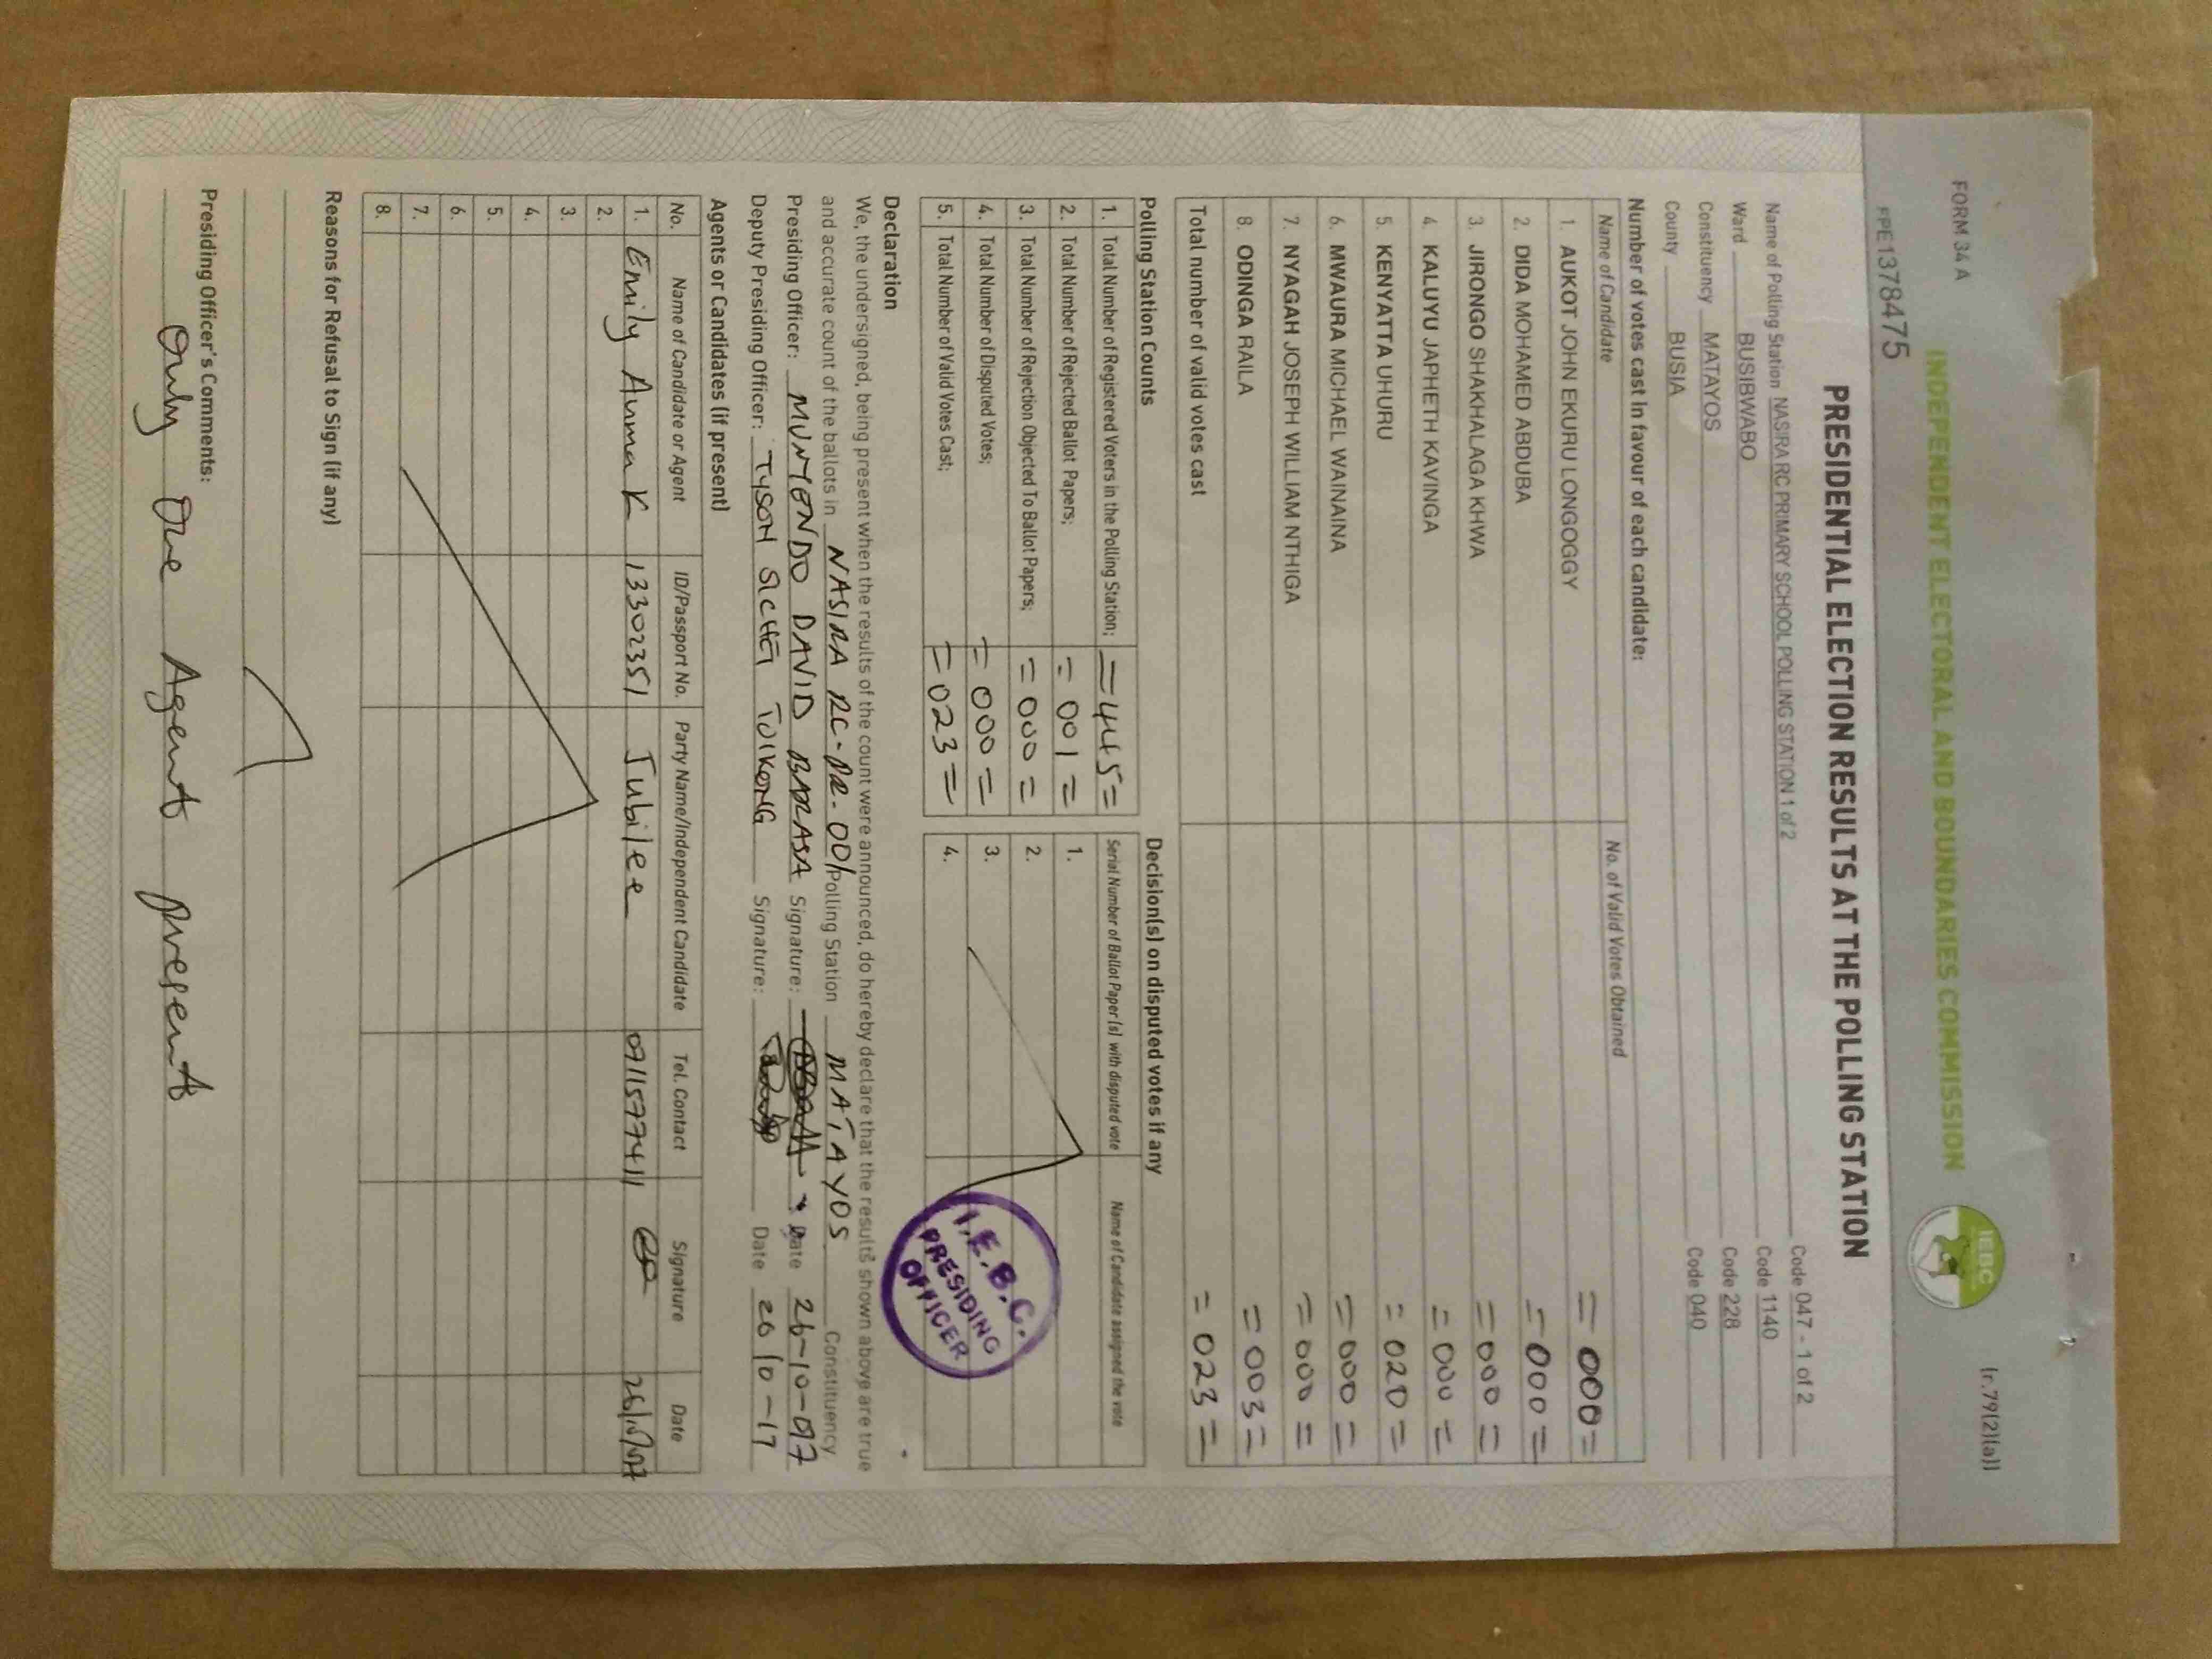 FORM 34 A
(r.79(2)(a))
INDEPENDENT ELECTORAL AND BOUNDARIES COMMISSION
IEBC
PPE1378475
PRESIDENTIAL ELECTION RESULTS AT THE POLLING STATION
Name of Polling Station NASIRA RC PRIMARY SCHOOL POLLING STATION 1 of 2 Code 047 - 1 of 2
Ward BUSIBWABO Code 1140
Constituency MATAYOS Code 228
County BUSIA Code 040
Number of votes cast in favour of each candidate:
Name of Candidate No. of Valid Votes Obtained
1. AUKOT JOHN EKURU LONGOGGY = 000 =
2. DIDA MOHAMED ABDUBA = 000 =
3. JIRONGO SHAKHALAGA KHWA = 000 =
4. KALUYU JAPHETH KAVINGA = 000 =
5. KENYATTA UHURU = 020 =
6. MWAURA MICHAEL WAINAINA = 000 =
7. NYAGAH JOSEPH WILLIAM NTHIGA = 000 =
8. ODINGA RAILA = 003 =
Total number of valid votes cast = 023 =
Polling Station Counts
1. Total Number of Registered Voters in the Polling Station; = 445 =
2. Total Number of Rejected Ballot Papers; = 001 =
3. Total Number of Rejection Objected To Ballot Papers; = 000 =
4. Total Number of Disputed Votes; = 000 =
5. Total Number of Valid Votes Cast; = 023 =
Decision(s) on disputed votes if any
Serial Number of Ballot Paper(s) with disputed vote Name of Candidate assigned the vote
1.
2.
3.
4.
I.E.B.C.
PRESIDING
OFFICER
Declaration
We, the undersigned, being present when the results of the count were announced, do hereby declare that the results shown above are true
and accurate count of the ballots in NASIRA RC-PR-001 Polling Station MATAYOS Constituency
Presiding Officer: MUNYENDO DAVID BARASA Signature: Date 26-10-017
Deputy Presiding Officer: TYSON SICHEI TOIKONG Signature: Date 26 10-17
Agents or Candidates (if present)
No. Name of Candidate or Agent ID/Passport No. Party Name/Independent Candidate Tel. Contact Signature Date
1. Emily Auma K 13302351 Jubilee 0711577411
2.
3.
4.
5.
6.
7.
8.
Reasons for Refusal to Sign (if any)
Presiding Officer's Comments:
Only One Agent present